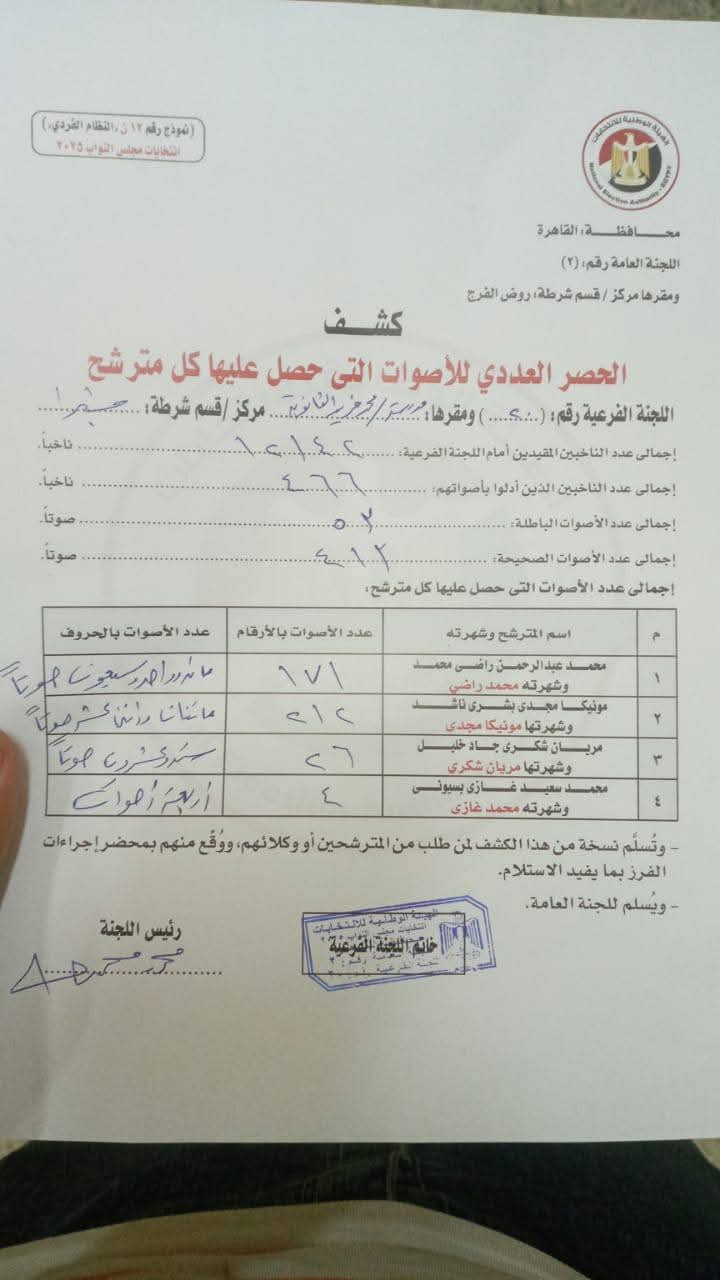 (نموذج رقم ١٢ ن، النظام الفردي)
انتخابات مجلس النواب ٢٠٢٥
الهيئة الوطنية للانتخابات
National Election Authority - EGYPT
محـافظـة: القاهرة
اللجنة العامة رقم: (٢)
ومقرها مركز / قسم شرطة: روض الفرج
كشف
الحصر العددي للأصوات التى حصل عليها كل مترشح
اللجنة الفرعية رقم: (٢٠) ومقرها: مدرسة / محمد فريد الثانوية مركز /قسم شرطة: شبرا
إجمالى عدد الناخبين المقيدين أمام اللجنة الفرعية: ١٢١٤٢ ناخباً.
إجمالى عدد الناخبين الذين أدلوا بأصواتهم: ٤٦٦ ناخباً.
إجمالى عدد الأصوات الباطلة: ٥٣ صوتاً.
إجمالى عدد الأصوات الصحيحة: ٤١٣ صوتاً.
إجمالى عدد الأصوات التى حصل عليها كل مترشح:
م اسم المترشح وشهرته عدد الأصوات بالأرقام عدد الأصوات بالحروف
١ محمد عبدالرحمن راضى محمد وشهرته محمد راضي ١٧١ مائة وواحد وسبعون صوتاً
٢ مونيكا مجدى بشرى ناشد وشهرتها مونيكا مجدى ٢١٢ مائتان واثنا عشر صوتاً
٣ مريان شكرى جاد خليل وشهرتها مريان شكري ٢٦ ستة وعشرون صوتاً
٤ محمد سعيد غازى بسيونى وشهرته محمد غازى ٤ أربعة أصوات
- وتُسلَّم نسخة من هذا الكشف لمن طلب من المترشحين أو وكلائهم، ووُقِّع منهم بمحضر إجراءات
الفرز بما يفيد الاستلام.
- ويُسلم للجنة العامة.
رئيس اللجنة
خاتم اللجنة الفرعية
الهيئة الوطنية للانتخابات